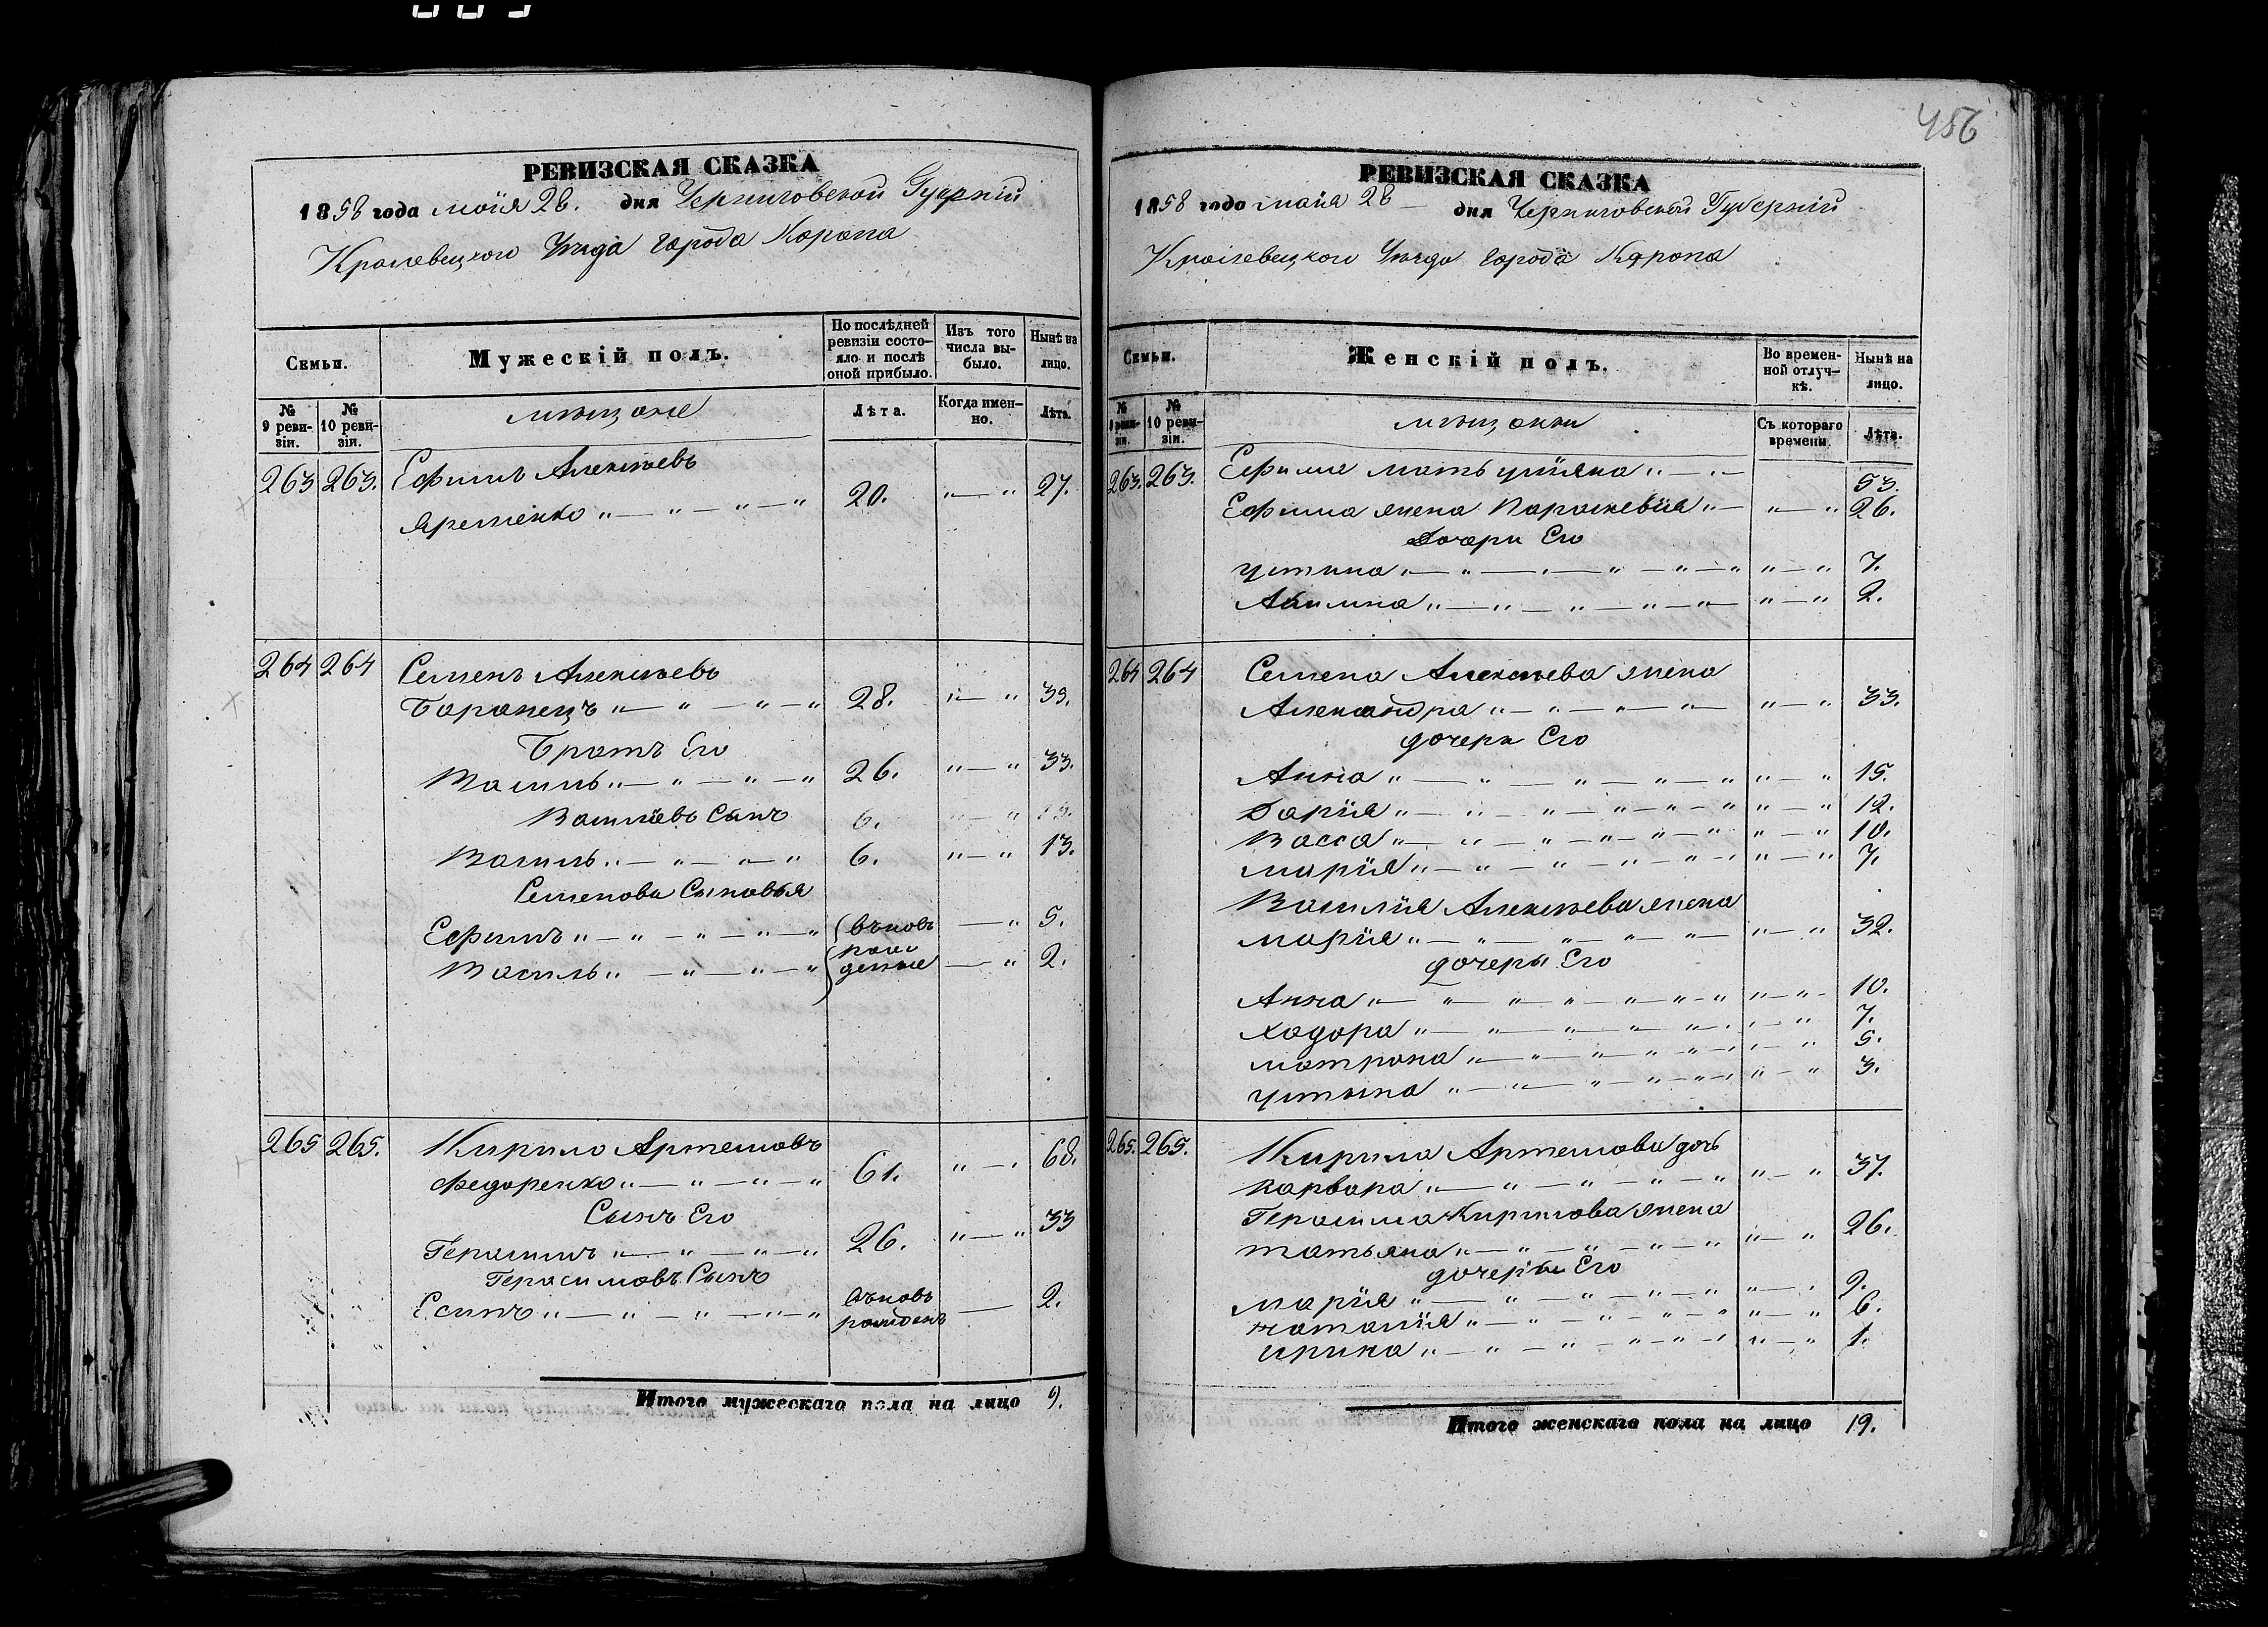 456
РЕВИЗСКАЯ СКАЗКА
1858 года мая 28. дня Черниговской Губерніи
Кролевецкого Уѣзда города Коропа
Семьи.
Мужескій полъ.
По послѣдней ревизіи состояло и послѣ оной прибыло.
Изъ того числа выбыло.
Нынѣ на лицо.
№ 9 ревизіи.
№ 10 ревизіи.
мѣщане
Лѣта.
Когда именно.
Лѣта.
263 263. Ефимъ Алексѣевъ
Яременко 20. 27.
264 264 Семенъ Алексѣевъ
Баранецъ 28. 35.
Братъ Его
Василь 26. 33.
Василіевъ Сынъ 6. 13.
Василь 6. 13.
Семенова Сыновья
Ефимъ вновь 5.
Василь рож денные 2.
265 265. Кирило Артемовъ
Федоренко 61. 68.
Сынъ Его
Герасимъ 26. 33
Герасимовъ Сынъ
Есипъ вновь рожденъ 2.
Итого мужескаго пола на лицо 9.
РЕВИЗСКАЯ СКАЗКА
1858 года мая 28 дня Черниговской Губерніи
Кролевецкого Уѣзда города Коропа
Семьи.
Женскій полъ.
Во временной отлучкѣ.
Нынѣ на лицо.
№ 9 ревизіи.
№ 10 ревизіи.
мѣщанки
Съ котораго времени.
Лѣта.
263. 263. Ефима мать уліяна 53.
Ефима жена Параскевія 26.
Дочери Его
устина 7.
Акилина 2.
264 264 Семена Алексѣева жена
Александра 33.
дочери Его
Анна 15.
Дарія 12.
Васса 10.
марія 7.
Василія Алексѣева жена
марія 32.
дочеры Его
Анна 10.
Ходора 7.
матрона 5.
устына 3.
265. 265. Кирила Артемова дочь
варвара 37.
Герасима Кирилова жена
татьяна 26.
дочеры Его
марія 9.
наталія 6.
ирина 1.
Итого женскаго пола на лицо 19.